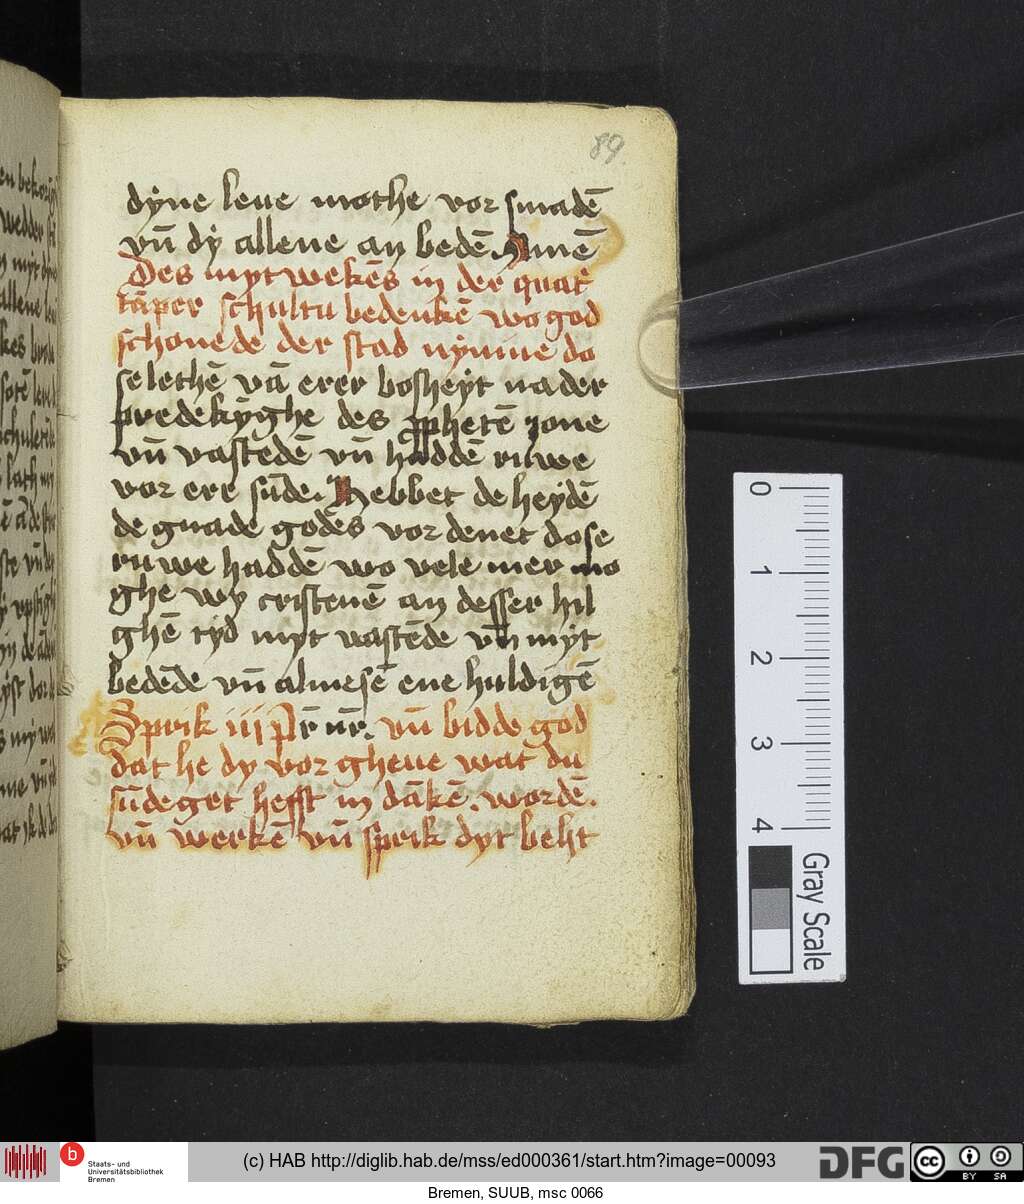 89.
dyne leue mothe vor smadē
vn̄ dy allene an bedē Amē
Des mytwekēs in der quat
tāper schultu bedenkē wo god
schonede der stad nyniue do
se lethē vā erer bosheyt na der
predekyghe des ꝓphetē Jone
vn̄ vastedē vn̄ haddē ruwe
vor ere sūde. Hebbet de heydē
de gnade godēs vor denet do se
ruwe haddē wo vele mer mo
ghe wy cristenē an desser hil
ghē tyd myt vastēde vn̄ myt
bedēde vn̄ almesē ene huldigē
Sprik iij Pr̄ nr̄. vn̄ bidde god
dat he dy vor gheue wat du
sūdeget hefst in dākē. wordē.
vn̄ werkē vn̄ sprik dyt beht
0
1
2
3
4
Gray Scale
b
Staats- und
Universitätsbibliothek
Bremen
(c) HAB http://diglib.hab.de/mss/ed000361/start.htm?image=00093
DFG
cc
BY SA
Bremen, SUUB, msc 0066